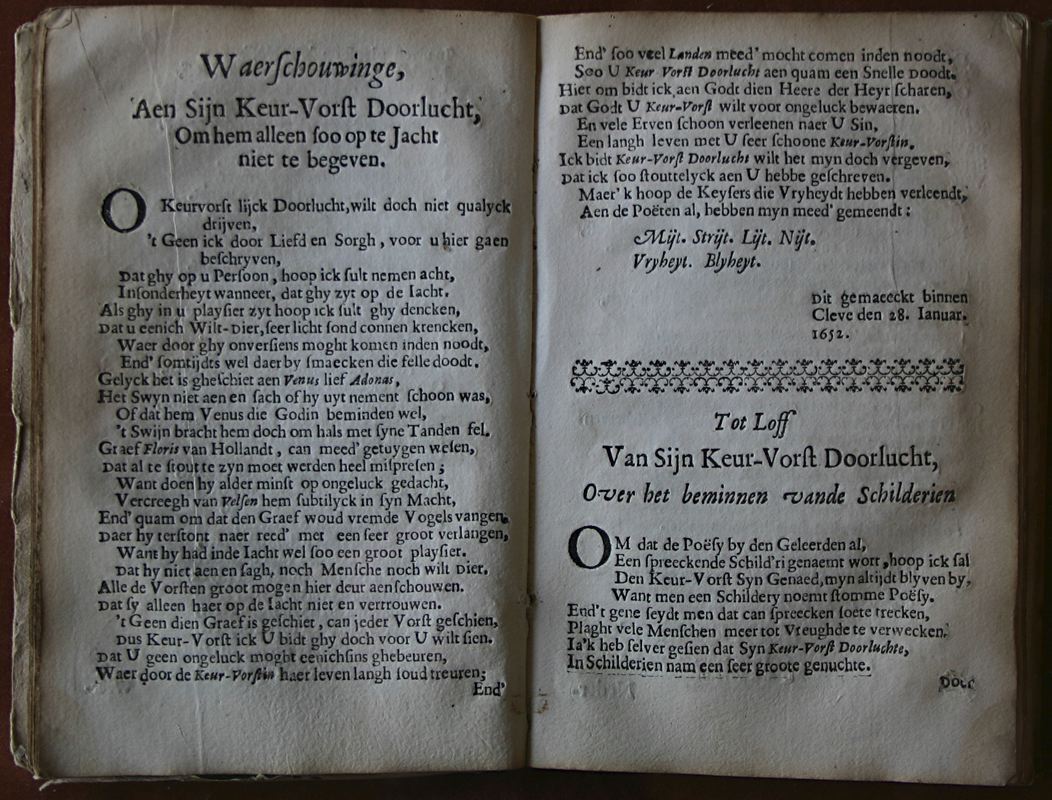 Waerſchouwinge,
Aen Sijn Keur-Vorſt Doorlucht,
Om hem alleen ſoo op te Jacht
niet te begeven.
O Keurvorſt lijck Doorlucht, wilt doch niet qualyck
drijven,
't Geen ick door Liefd en Sorgh, voor u hier gaen
beſchryven,
Dat ghy op u Perſoon, hoop ick ſult nemen acht,
Inſonderheyt wanneer, dat ghy zyt op de Iacht.
Als ghy in u playſier zyt hoop ick ſult ghy dencken,
Dat u eenich Wilt-Dier, ſeer licht ſond connen krencken,
Waer door ghy onverſiens moght komen inden noodt,
End' ſomtijdts wel daer by ſmaecken die felle doodt.
Gelyck het is gheſchiet aen Venus lief Adonas,
Het Swyn niet aen en ſach of hy uyt nement ſchoon was,
Of dat hem Venus die Godin beminden wel,
't Swijn bracht hem doch om hals met ſyne Tanden fel.
Graef Floris van Hollandt, can meed' getuygen weſen,
Dat al te ſtout te zyn moet werden heel miſpreſen;
Want doen hy alder minſt op ongeluck gedacht,
Vercreegh van Velſen hem ſubtilyck in ſyn Macht,
End' quam om dat den Graef woud vremde Vogels vangen,
Daer hy terſtont naer reed' met een ſeer groot verlangen,
Want hy had inde Iacht wel ſoo een groot playſier.
Dat hy niet aen en ſagh, noch Menſche noch wilt Dier.
Alle de Vorſten groot mogen hier deur aenſchouwen.
Dat ſy alleen haer op de Iacht niet en vertrouwen.
't Geen dien Graef is geſchiet, can jeder Vorſt geſchien,
Dus Keur-Vorſt ick U bidt ghy doch voor U wilt ſien.
Dat U geen ongeluck moght eenichſins ghebeuren,
Waer door de Keur-Vorſtin haer leven langh ſoud treuren;
End'
End' ſoo veel Landen meed' mocht comen inden noodt,
Soo U Keur Vorſt Doorlucht aen quam een Snelle Doodt.
Hier om bidt ick aen Godt dien Heere der Heyr ſcharen,
Dat Godt U Keur-Vorſt wilt voor ongeluck bewaeren.
En vele Erven ſchoon verleenen naer U Sin,
Een langh leven met U ſeer ſchoone Keur-Vorſtin.
Ick bidt Keur-Vorſt Doorlucht wilt het myn doch vergeven,
Dat ick ſoo ſtouttelyck aen U hebbe geſchreven.
Maer 'k hoop de Keyſers die Vryheydt hebben verleendt,
Aen de Poëten al, hebben myn meed' gemeendt:
Mijt. Strijt. Lijt. Nijt.
Vryheyt. Blyheyt.
Dit gemaeckt binnen
Cleve den 28. Ianuar.
1652.
Tot Loff
Van Sijn Keur-Vorſt Doorlucht,
Over het beminnen vande Schilderien
OM dat de Poëſy by den Geleerden al,
Een ſpreeckende Schild'ri genaemt wort, hoop ick ſal
Den Keur-Vorſt Syn Genaed, myn altijdt blyven by,
Want men een Schildery noemt ſtomme Poëſy.
End't gene ſeydt men dat can ſpreecken ſoete trecken,
Plaght vele Menſchen meer tot Vreughde te verwecken.
Ia'k heb ſelver geſien dat Syn Keur-Vorſt Doorluchte,
In Schilderien nam een ſeer groote genuchte.
Door